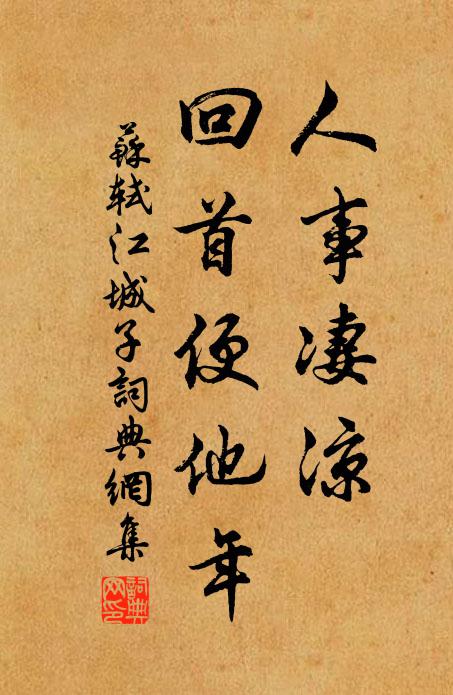 人事凄涼
回首便他年
蘇軾江城子詞典網集
詞典网印